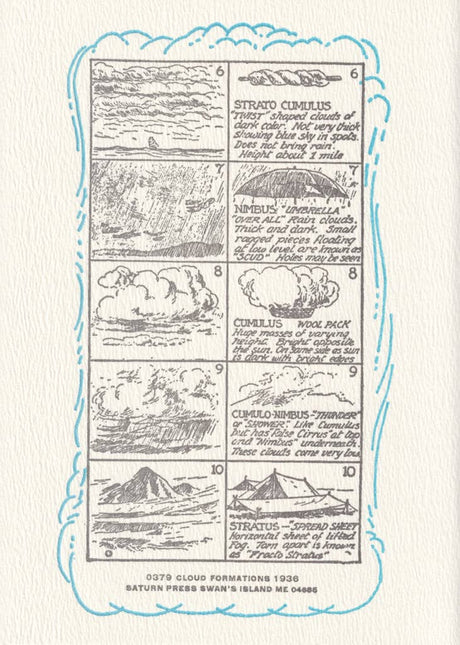 6
6
STRATO CUMULUS
"TWIST" shaped clouds of
dark color. Not very thick
showing blue sky in spots.
Does not bring rain.
Height about 1 mile
7
7
NIMBUS: "UMBRELLA"
"OVER ALL" Rain clouds.
Thick and dark. Small
ragged pieces floating
at low level are known as
"SCUD" Holes may be seen
8
8
CUMULUS WOOL PACK
Huge masses of varying
height. Bright opposite
the sun. On same side as sun
is dark with bright edges
9
9
CUMULO-NIMBUS-"THUNDER"
or "SHOWER". Like Cumulus
but has False Cirrus at top
and "Nimbus" underneath.
These clouds come very low
10
10
STRATUS-"SPREAD SHEET"
Horizontal sheet of lifted
Fog. Torn apart is known
as "Fracto Stratus"
0379 CLOUD FORMATIONS 1936
SATURN PRESS SWAN'S ISLAND ME 04685